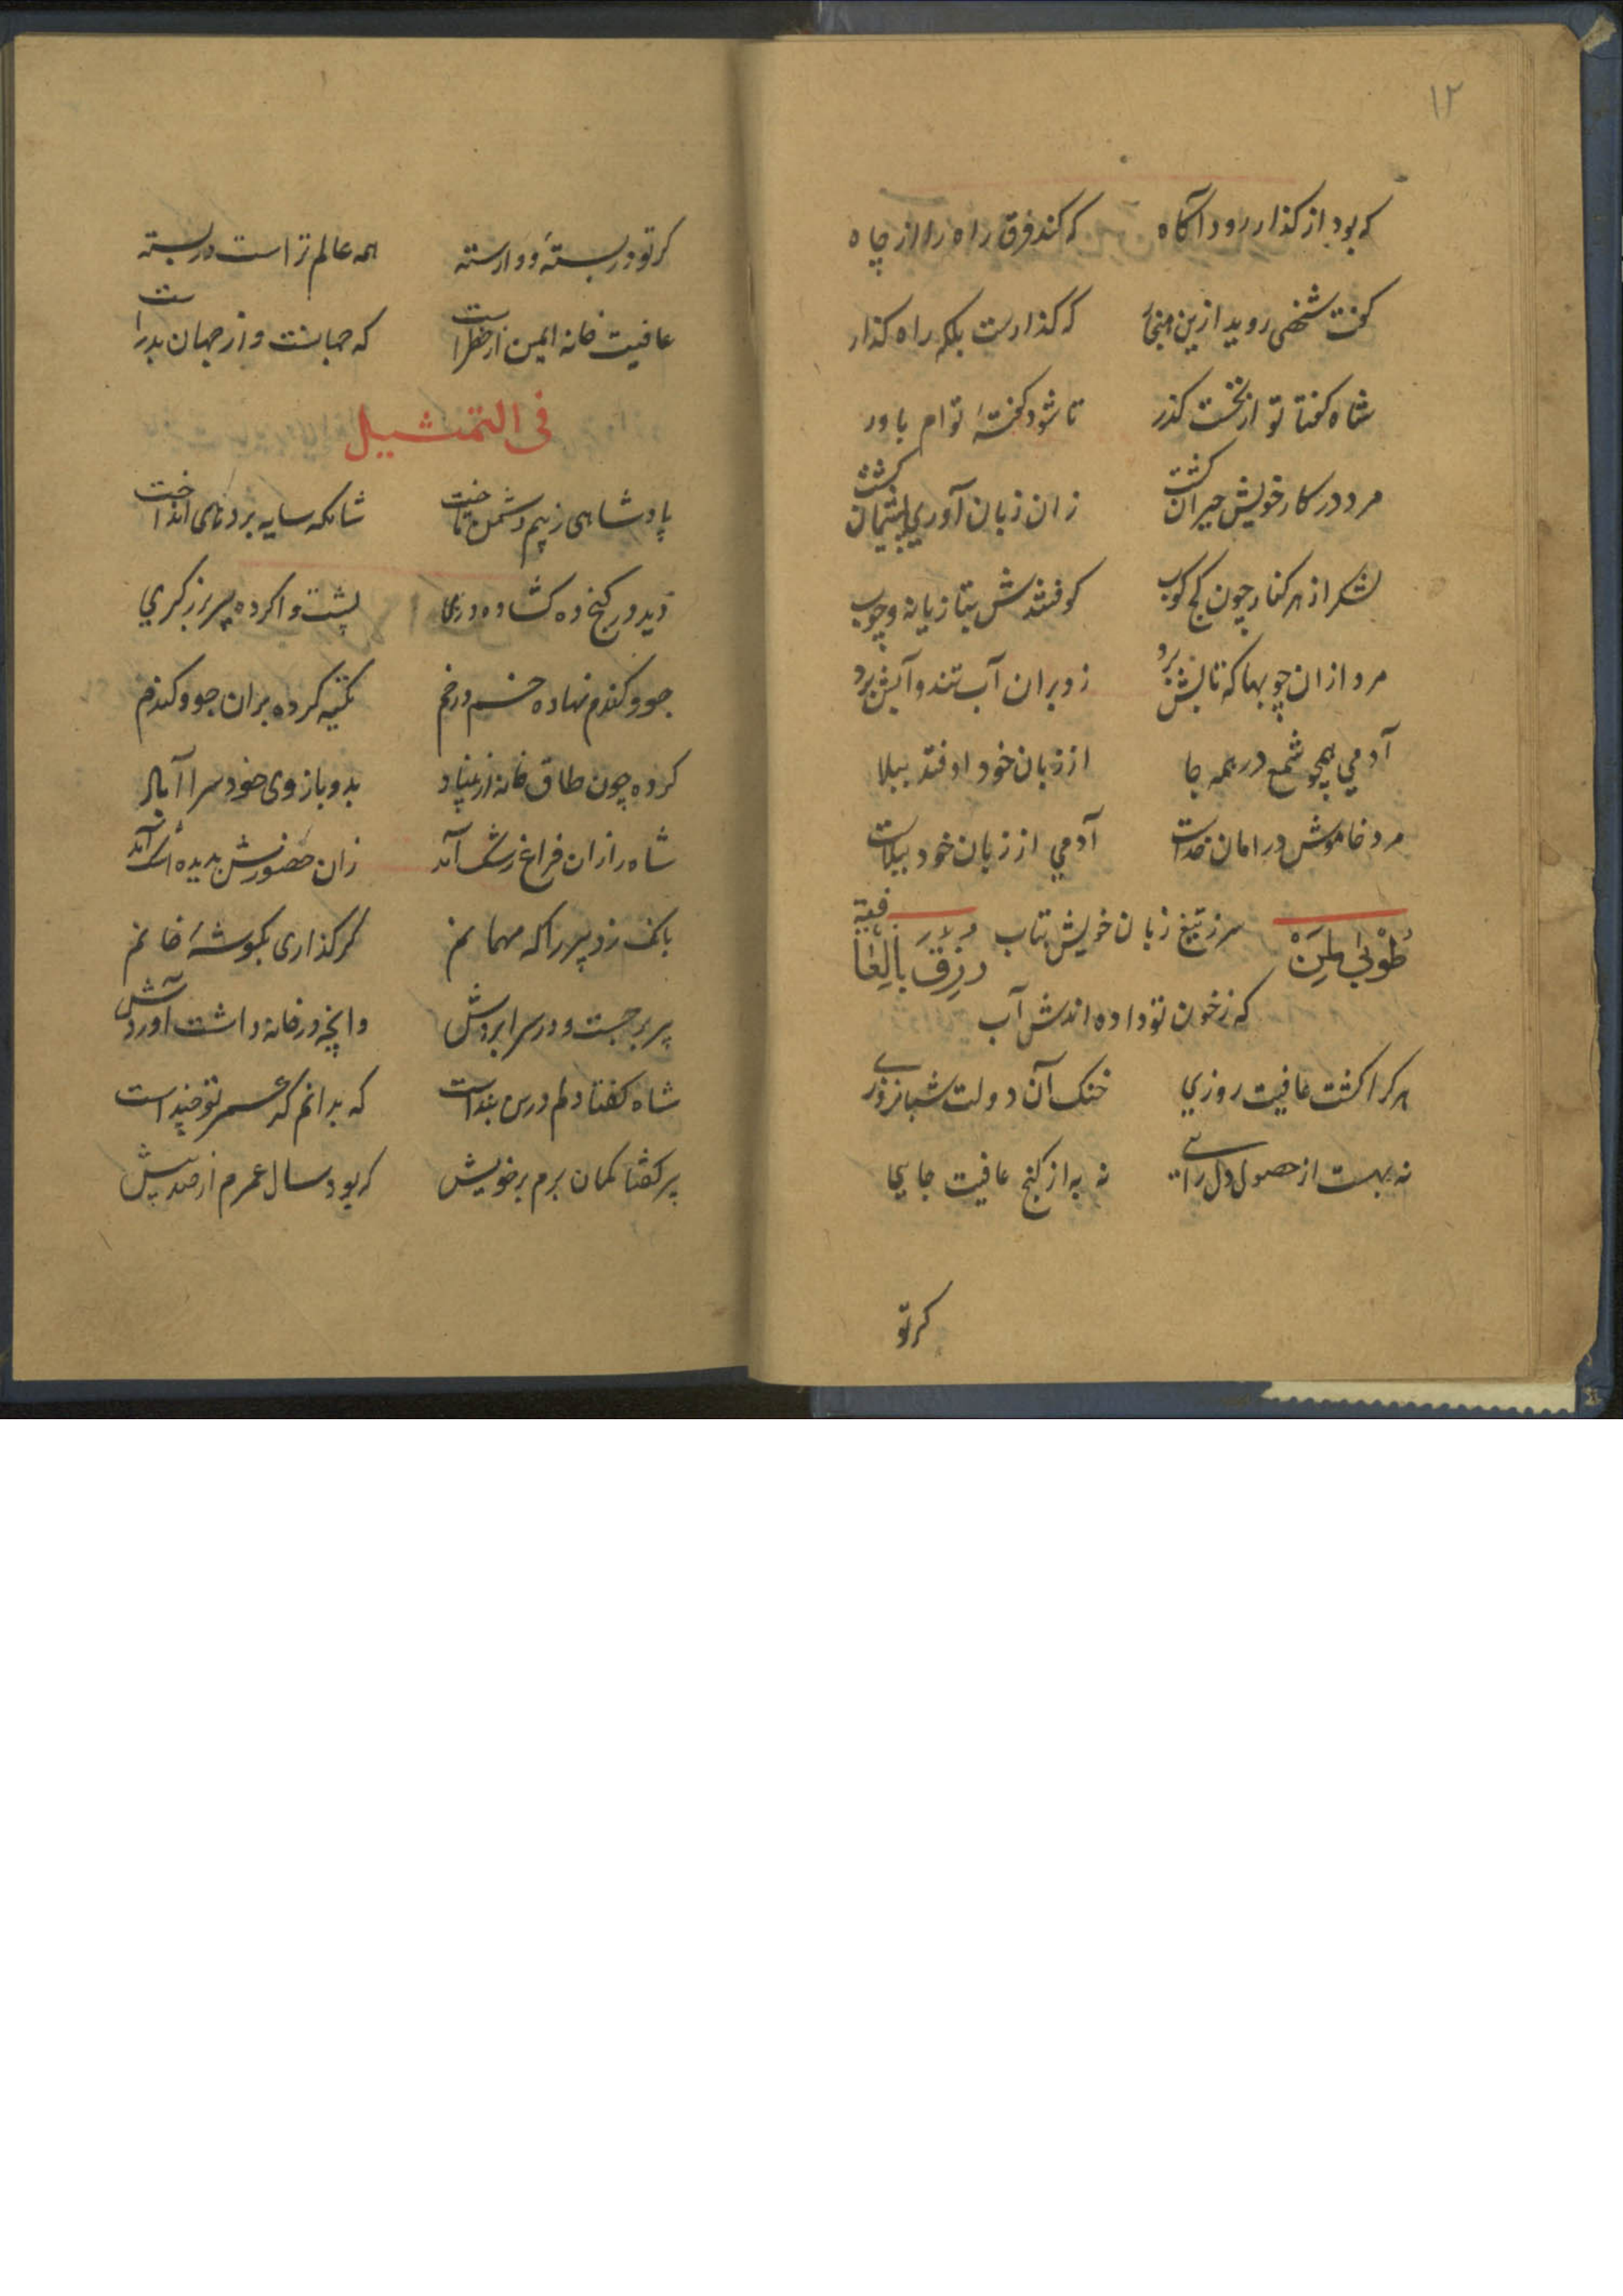 ١٢
که بود از کذار رود آکاه که کند فرق راه را از چاه
کفت شخصی روید ازین که کذارست بلکه راه کذار
شاه کفتا تو از نخست کذر تا شود کفتهٔ توام باور
مرد در کار خویش حیران کشت زان زبان آوری پشیمان کشت
لشکر از هر کنار چون کج کوب کوفتندش بتازیانه و چوب
مرد ازان چوبها که تابش برد زد بران آب تند و آبش برد
آدمي همچو شمع در همه جا از زبان خود اوفتد ببلا
مرد خاموش در امان خداست آدمي از زبان خود ببلاست
طُوْبیٰ لِمَنْ رُزِقَ بِالْعَافِیَة
سر ز تیغ زبان خویش بتاب
که ز خون تو داده اندش آب
هر کرا کشت عافیت روزي خنک آن دولت شبانروزے
نه بهست از حصول دل رائے نه به از کنج عافیت جایي
کر تو
کر تو در بستهٔ و وارسته همه عالم تراست در بسته
عافیت خانه ایمن از خطراست که جهانست و از جهان بدراست
فی التمثیل
پادشاهی ز بیم دشمن تاخت شانکه سایه بر دهی انداخت
دید در کنج ده کشاده دری پشت وا کرده پیر برزکري
جو و کندم نهاده خم در خم تکیه کرده بران جو و کندم
کرده چون طاق خانه از بنیاد بدو بازوی خود سرا آباد
شاه را زان فراغ رشک آمد زان حضورش بدیده اشک آمد
بانک زد پیر را که مهمانم کر کذاری بکوشهٔ خانم
پیر برجست و در سرا بردش وانچه در خانه داشت آوردش
شاه کفتا دلم درین بنداست که بدانم که عمر تو چنداست
پیر کفتا کمان برم بر خویش که بود سال عمرم از صد بیش